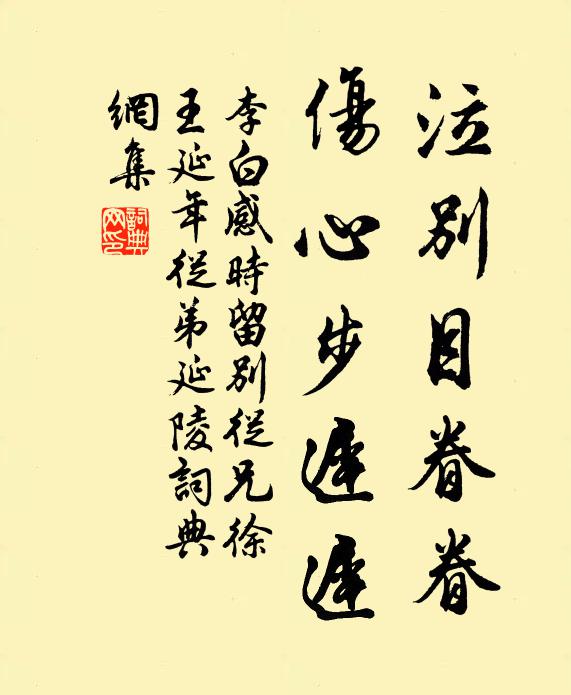 泣別目眷眷
傷心步遲遲
李白感時留別從兄徐
王延年從弟延陵詞典
網集
詞典
网印